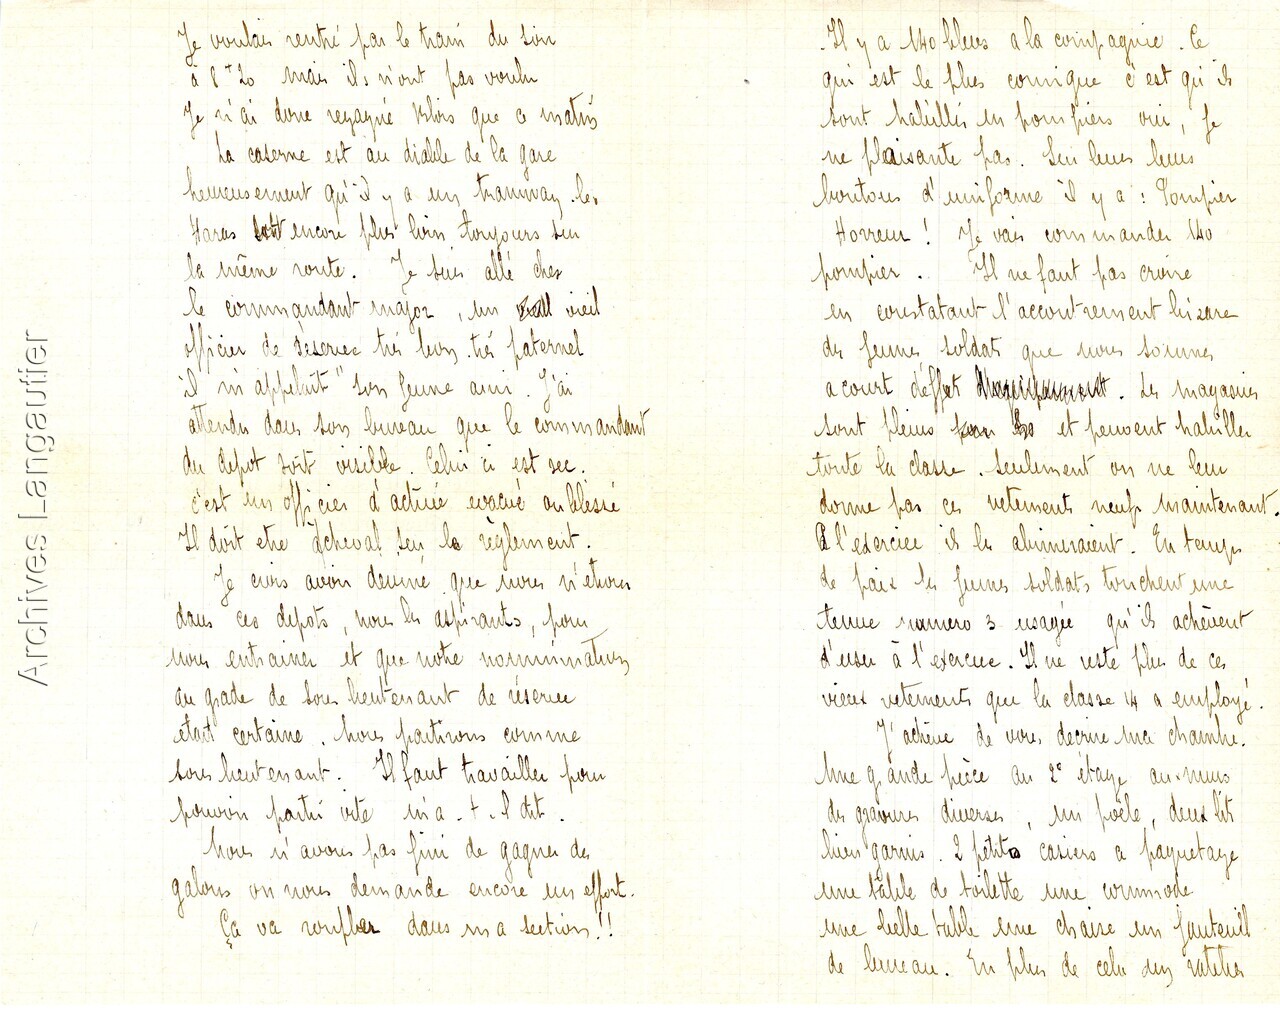 Je voulais rentré par le train du soir
à 8 h 20 mais ils n'ont pas voulu
Je n'ai donc regagné Blois que ce matin
La caserne est au diable de la gare
heureusement qu'il y a un tramway. les
Haras sont encore plus loin toujours sur
la même route. Je suis allé chez
le commandant major, un vieil
officier de réserve très bon, très paternel
il m'appelait "son jeune ami. J'ai
attendu dans son bureau que le commandant
du depot soit visible. Celui ci est sec.
c'est un officier d'active evacué ou blessé
Il doit etre àcheval sur le règlement.
Je crois avoir deviné que nous n'étions
dans ces depots, nous les aspirants, pour
nous entrainer et que notre nomination
au grade de sous lieutenant de réserve
etait certaine. Nous partirons comme
sous lieutenant. Il faut travailler pour
pouvoir partir vite m'a-t-il dit.
Nous n'avons pas fini de gagner des
galons on nous demande encore un effort.
Ça va ronfler dans ma section!!
Il y a 140 bleus a la compagnie. Ce
qui est le plus comique c'est qu'ils
sont habillés en pompiers oui, je
ne plaisante pas. Sur leurs
boutons d'uniforme il y a : Pompier
Horreur ! Je vais commander 140
pompier. Il ne faut pas croire
en constatant l'accoutrement bizare
des jeunes soldats que nous sommes
a court d'effet. Les magasins
sont pleins et peuvent habiller
toute la classe. seulement on ne leur
donne pas ces vetements neufs maintenant.
A l'exercice il les abimeraient. En temps
de paix les jeunes soldats touchent une
tenue numero 3 usagée qu'ils achèvent
d'user à l'exercice. Il ne reste plus de ces
vieux vetements que la classe 14 a employé.
J'achève de vous decrire ma chambre.
Une grande pièce au 2e étage aux murs
des gravures diverses, un poële, deux lits
bien garnis. 2 petits casiers a paquetage
une table de toilette une commode
une belle table une chaise un fauteuil
de bureau. En plus de cela des rateliers
Archives Langautier